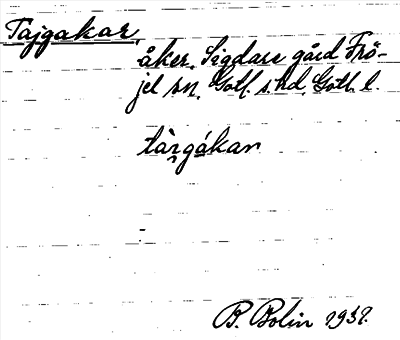 Tajgakar,
åker, Sigdare gård Frö-
jel sn. Gotl. s. hd. Gotl. l.
tàrgákar
B. Bolin 1937.